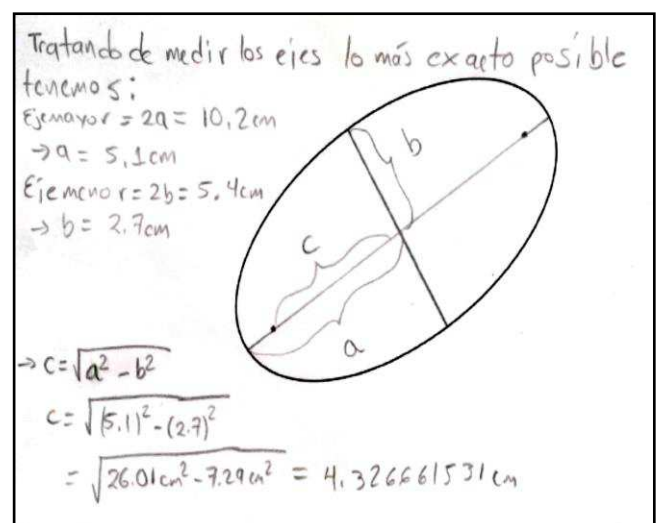 Tratando de medir los ejes lo más exacto posible
tenemos:
Eje mayor = 2a = 10,2cm
→ a = 5,1cm
Eje menor = 2b = 5.4cm
→ b = 2.7cm
b
c
a
→ c = √(a² - b²)
c = √((5.1)² - (2.7)²)
= √(26.01cm² - 7.29cm²) = 4.326661531cm